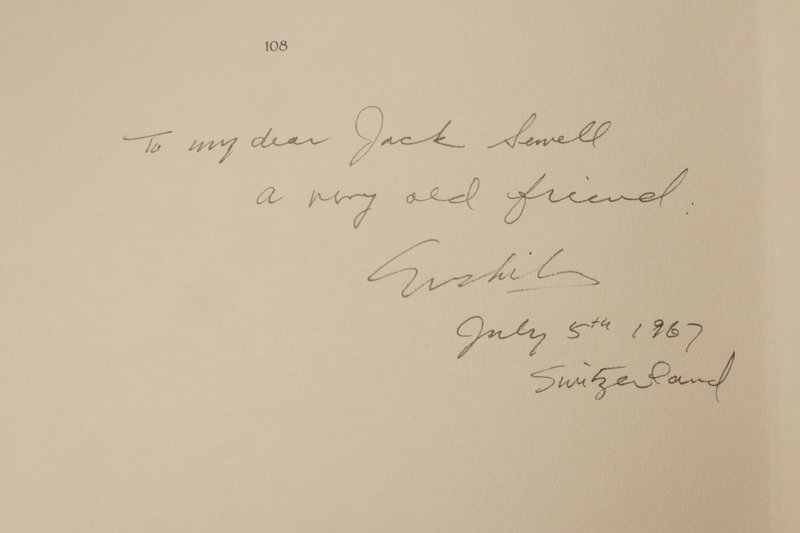 108
To my dear Jack Sewell
a very old friend.
July 5th 1967
Switzerland